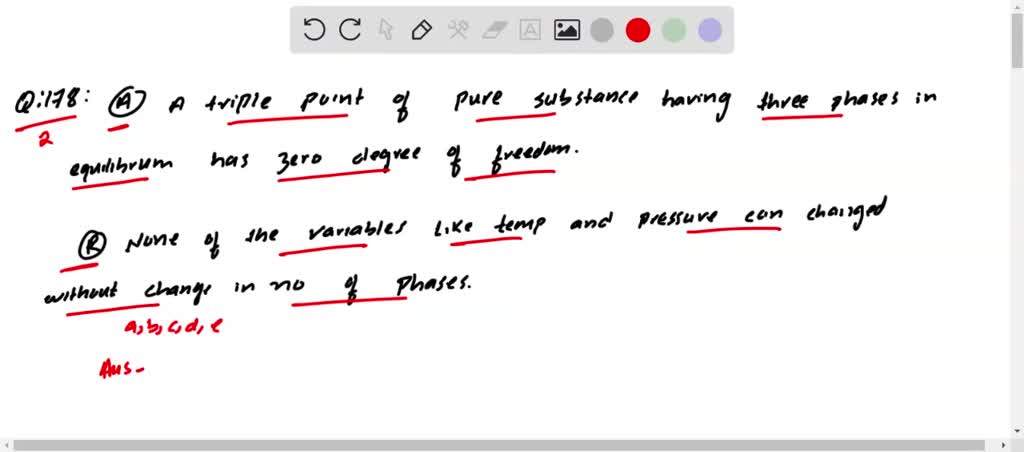 Q:178: (A) A triple point of pure substance having three phases in
2
equilibrum has zero degree of freedom.
(R) None of the variables like temp and pressure can changed
without change in no of phases.
a, b, c, d, e
Ans -